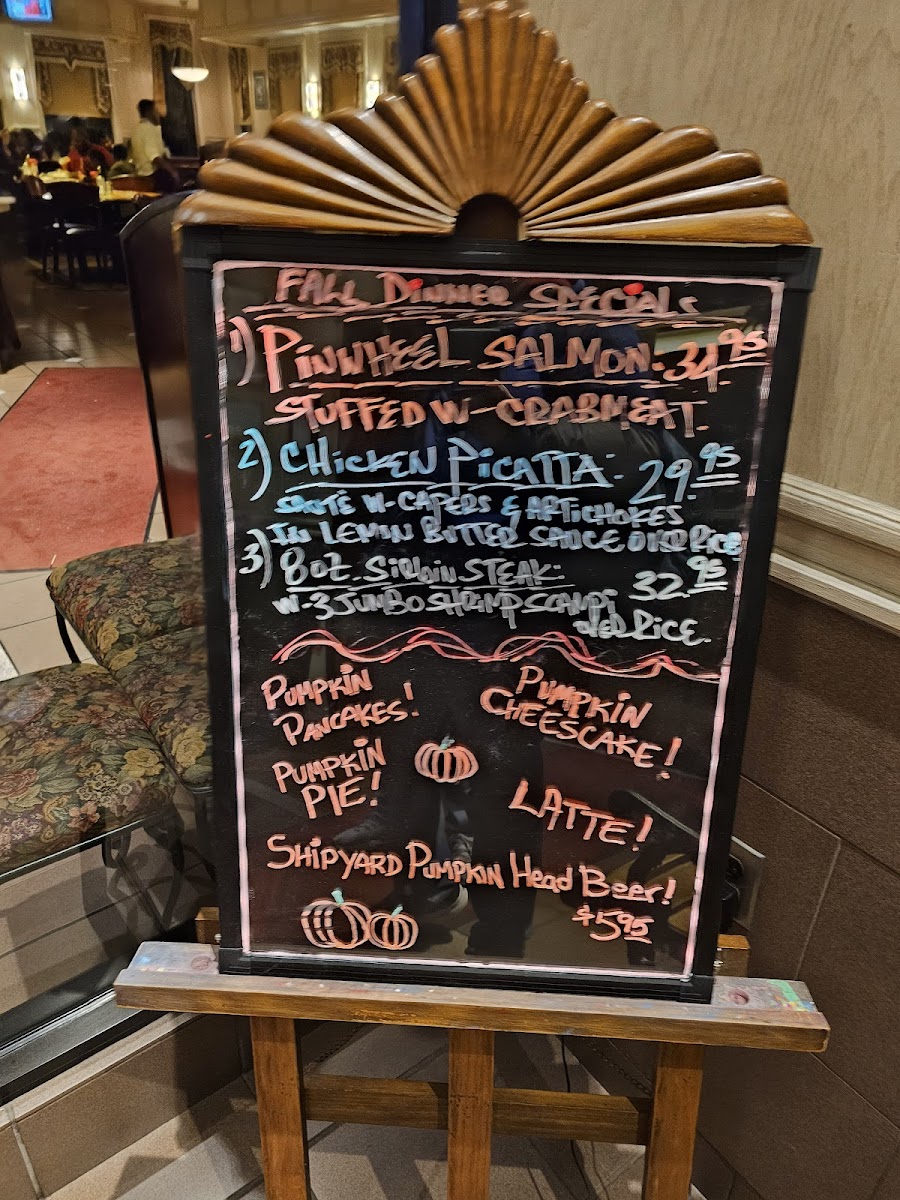 FALL DINNER SPECIALS
1) PINWHEEL SALMON - 34.95
STUFFED W- CRABMEAT.
2) CHICKEN PICATTA - 29.95
SAUTÉ W- CAPERS & ARTICHOKES
IN LEMON BUTTER SAUCE OVER RICE
3) 8oz. SIRLOIN STEAK: 32.95
W- 3 JUMBO SHRIMP SCAMPI
OVER RICE.
PUMPKIN
PANCAKES!
PUMPKIN
CHEESCAKE!
PUMPKIN
PIE!
LATTE!
SHIPYARD PUMPKIN HEAD BEER!
$5.95